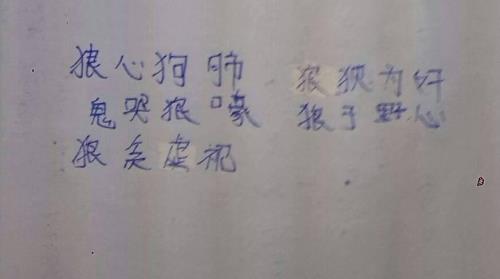 狼心狗肺 狼狈为奸
鬼哭狼嚎 狼子野心
狼